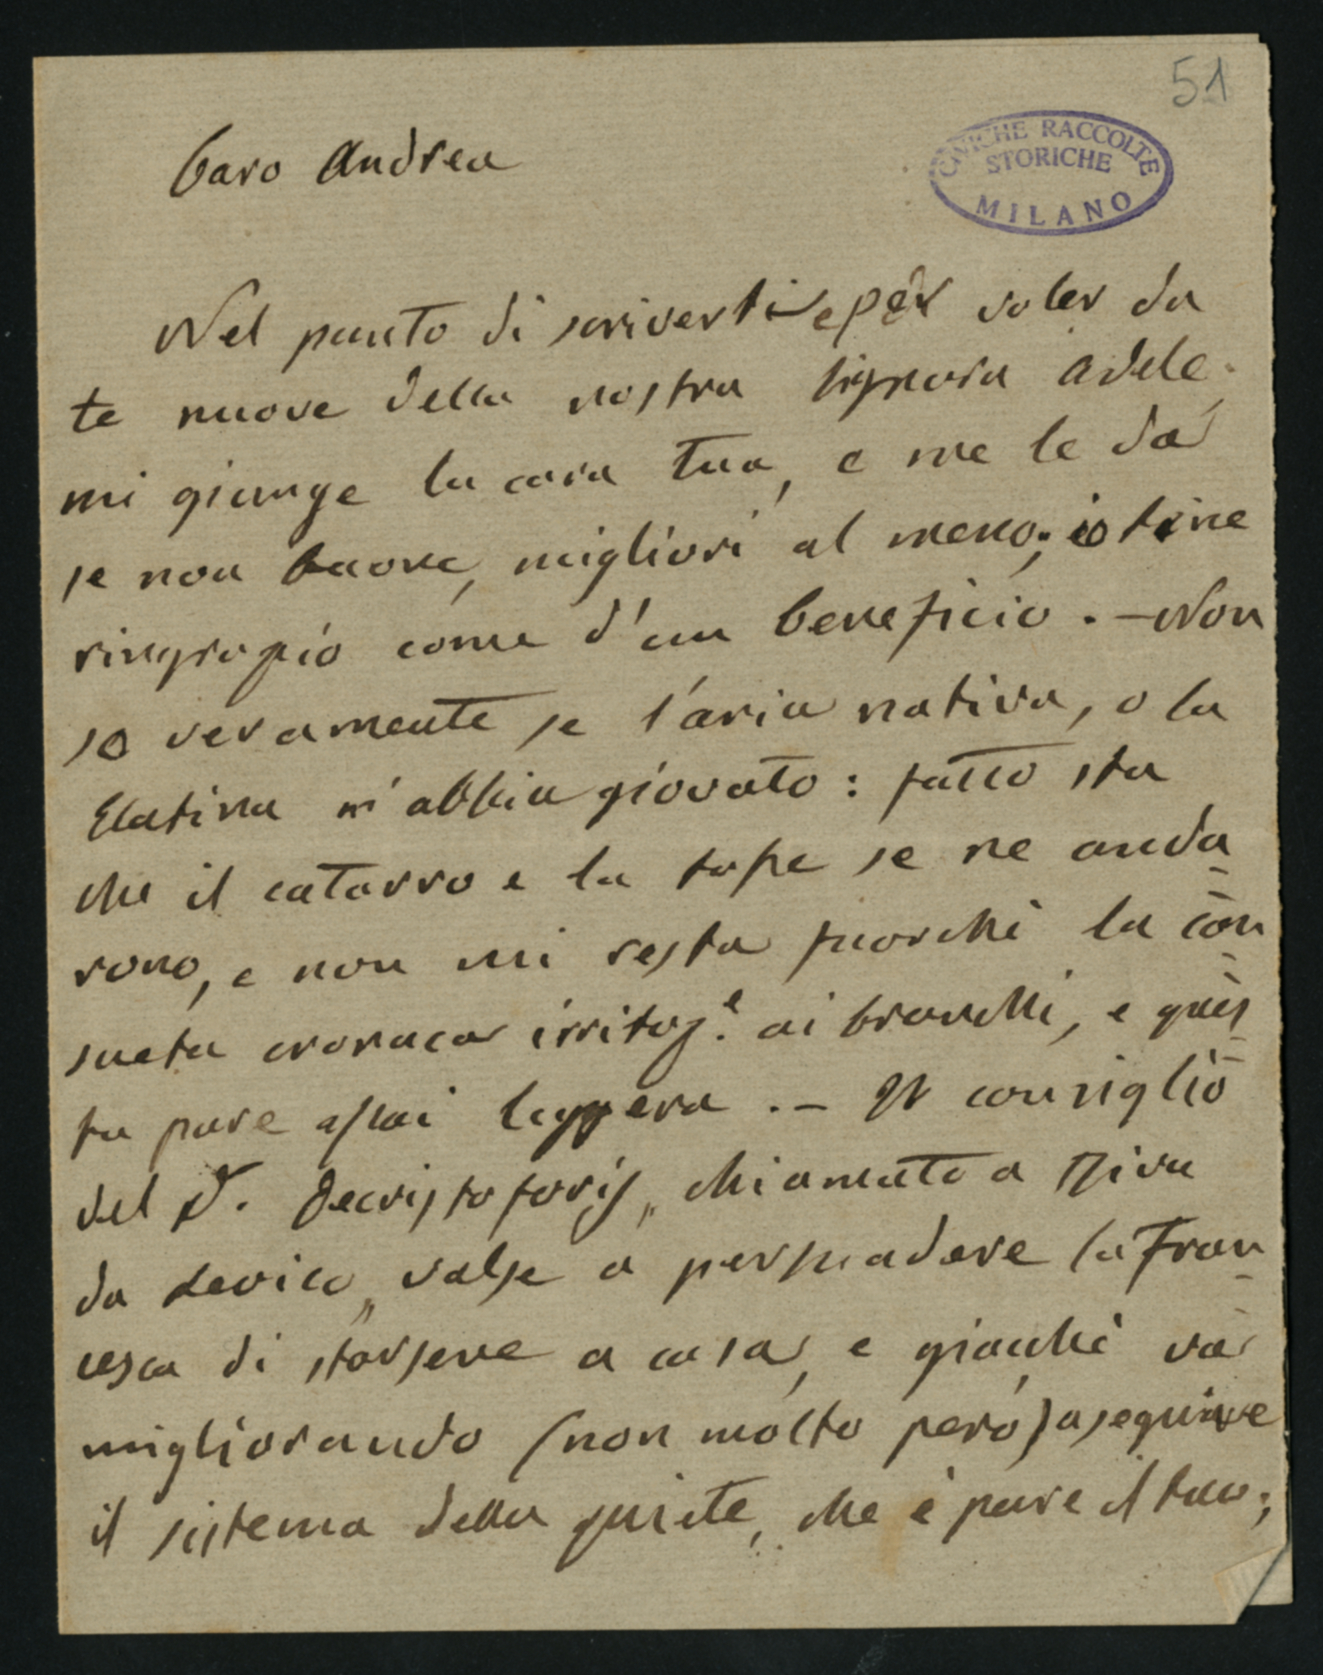 51
CIVICHE RACCOLTE
STORICHE
MILANO
Caro Andrea
Nel punto di scriverti e per voler da
te nuove della nostra signora Adele,
mi giunge la cara tua, e me le dà
se non buone, migliori al meno; io te ne
ringrazio come d'un beneficio. - Non
so veramente se l'aria nativa, o la
Elatina m'abbia giovato: fatto sta
che il catarro e la tosse se ne anda
rono, e non mi resta fuorchè la con
sueta cronaca irritaz.e ai bronchi, e ques
ta pure assai leggera. - Il consiglio
del D. Decristoforis, chiamato a Riva
da Levico, valse a persuadere la Fran
cesca di starsene a casa, e giacchè va
migliorando (non molto però) a seguire
il sistema della quiete, che è pure il tuo;